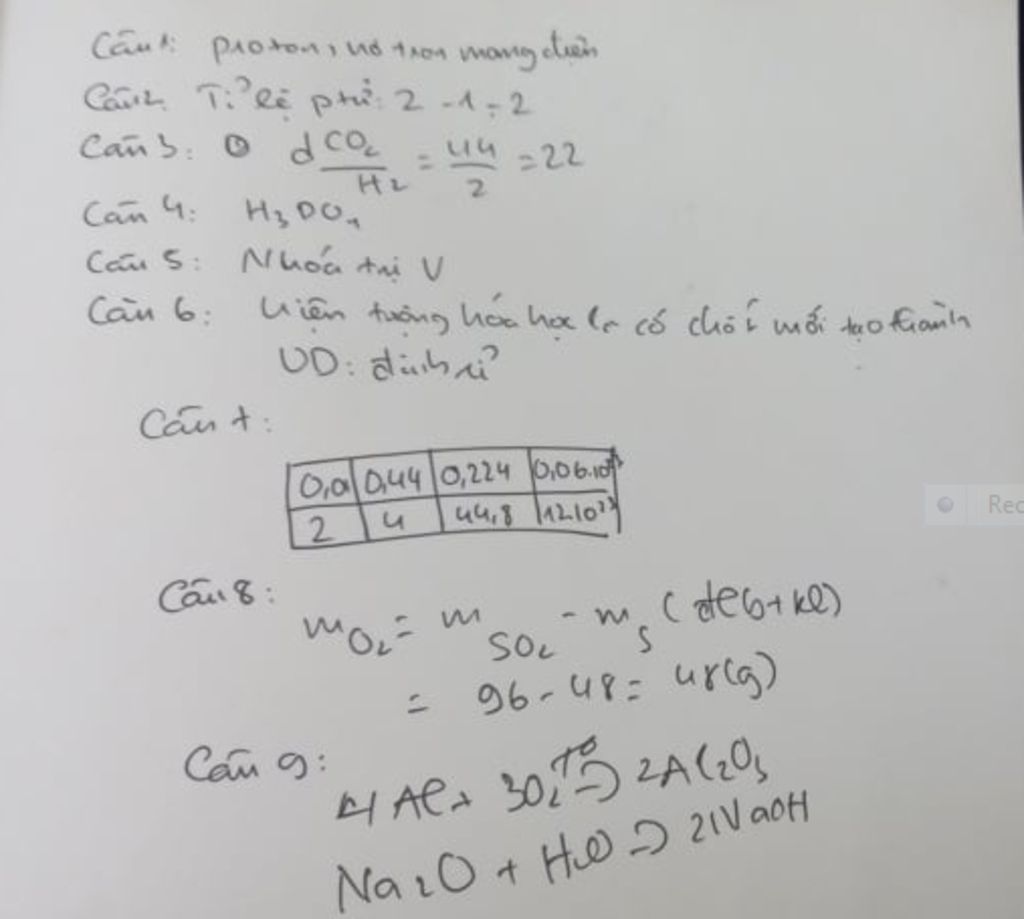 Câu 1: proton, nơ tron mang điện
Câu 2: Tỉ lệ ptử: 2 - 1 - 2
Câu 3: d CO₂/H₂ = 44/2 = 22
Câu 4: H₃PO₄
Câu 5: N hóa trị V
Câu 6: Hiện tượng hóa học là có chất mới tạo thành
VD: đinh rỉ
Câu 7:
0,01 0,44 0,224 0,06.10²³
2 4 44,8 12.10²³
Câu 8:
m O₂ = m SO₂ - m S (đlbt+kl)
= 96 - 48 = 48(g)
Câu 9:
4Al + 3O₂ t⁰→ 2Al₂O₃
Na₂O + H₂O → 2NaOH
Rec